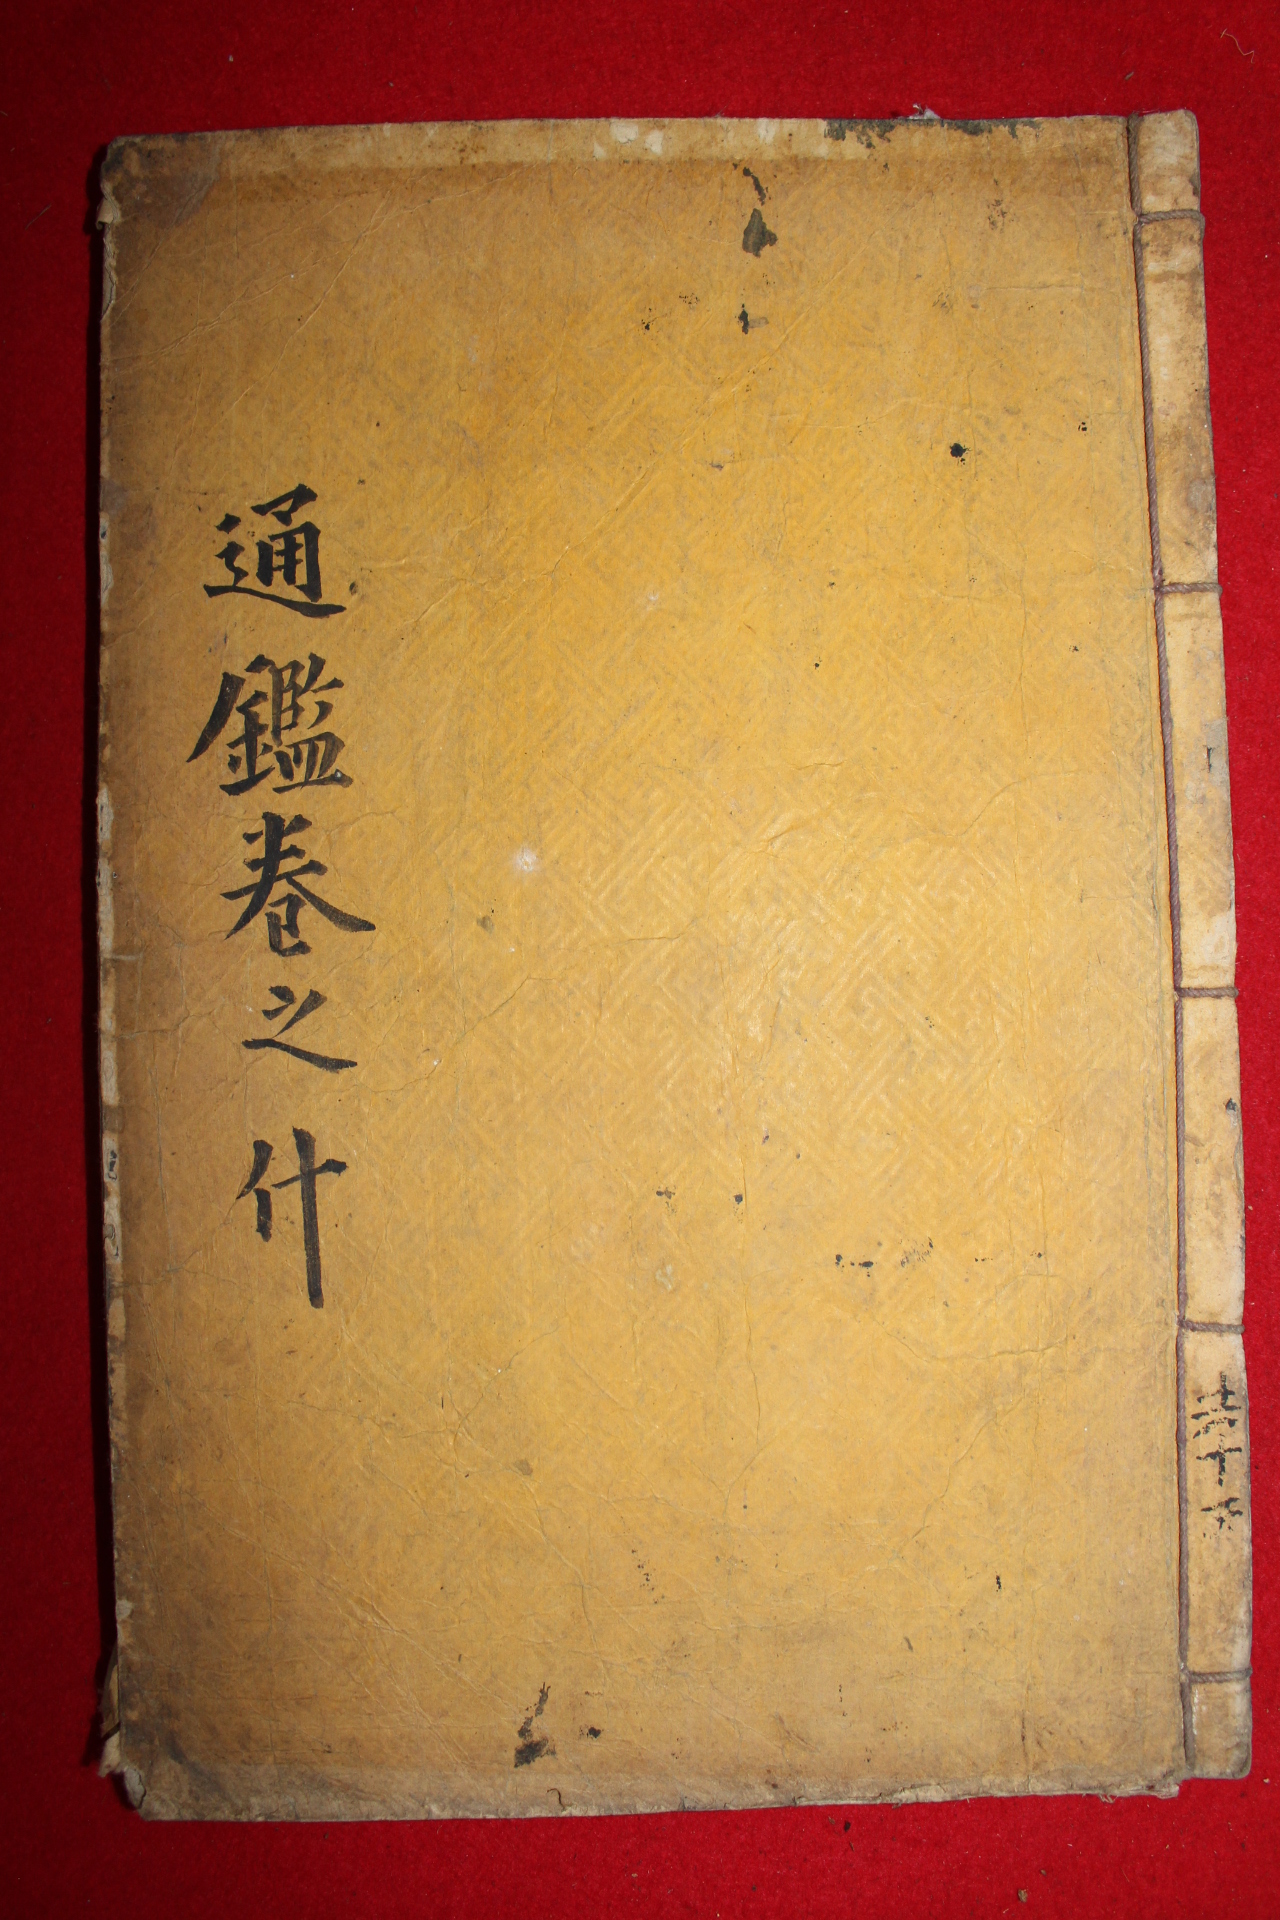 通鑑卷之什